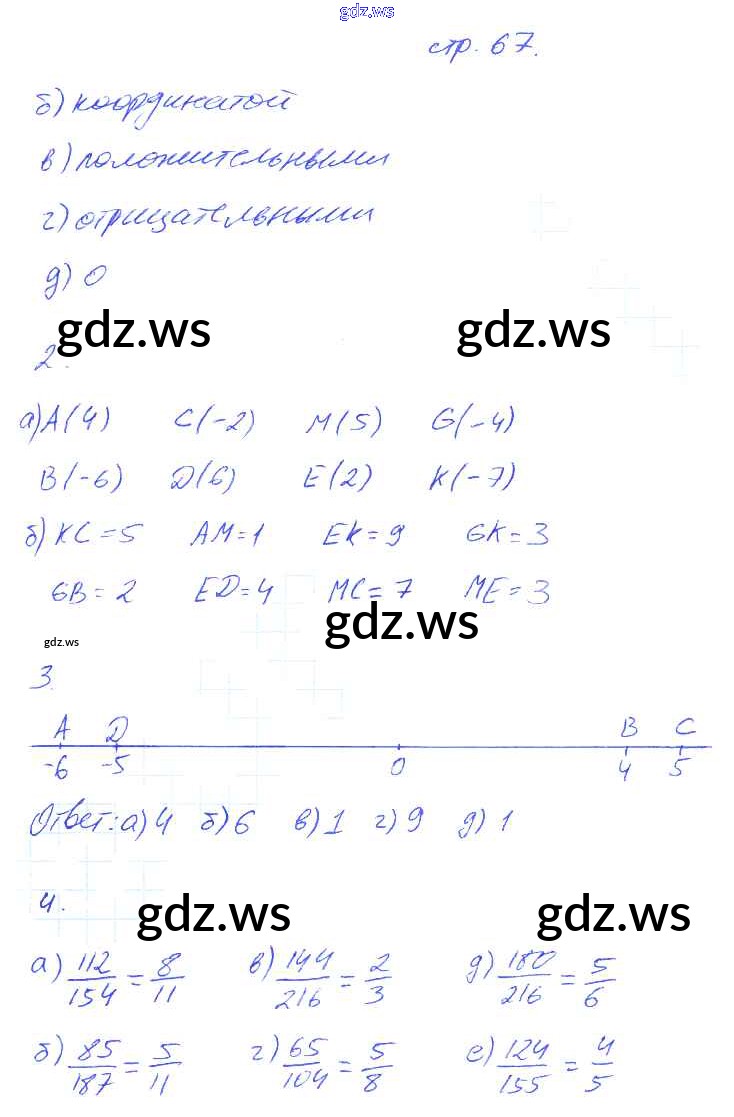 gdz.ws
стр. 67.
б) координатой
в) положительными
г) отрицательными
д) 0
gdz.ws gdz.ws
2.
а) A(4) C(-2) M(5) G(-4)
B(-6) D(6) E(2) K(-7)
б) KC=5 AM=1 EK=9 GK=3
GB=2 ED=4 MC=7 ME=3
gdz.ws
gdz.ws
3.
A D B C
-6 -5 0 4 5
Ответ: а) 4 б) 6 в) 1 г) 9 д) 1
4.
gdz.ws gdz.ws
а) 112/154 = 8/11 в) 144/216 = 2/3 д) 180/216 = 5/6
б) 85/187 = 5/11 г) 65/104 = 5/8 е) 124/155 = 4/5